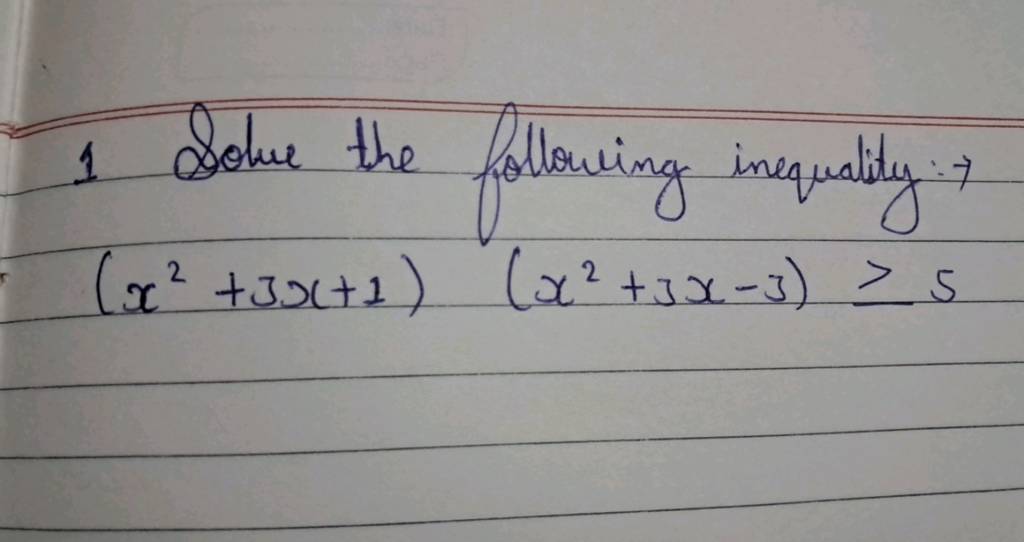 1 Solve the following inequality :→
(x² + 3x + 1) (x² + 3x - 3) ≥ 5